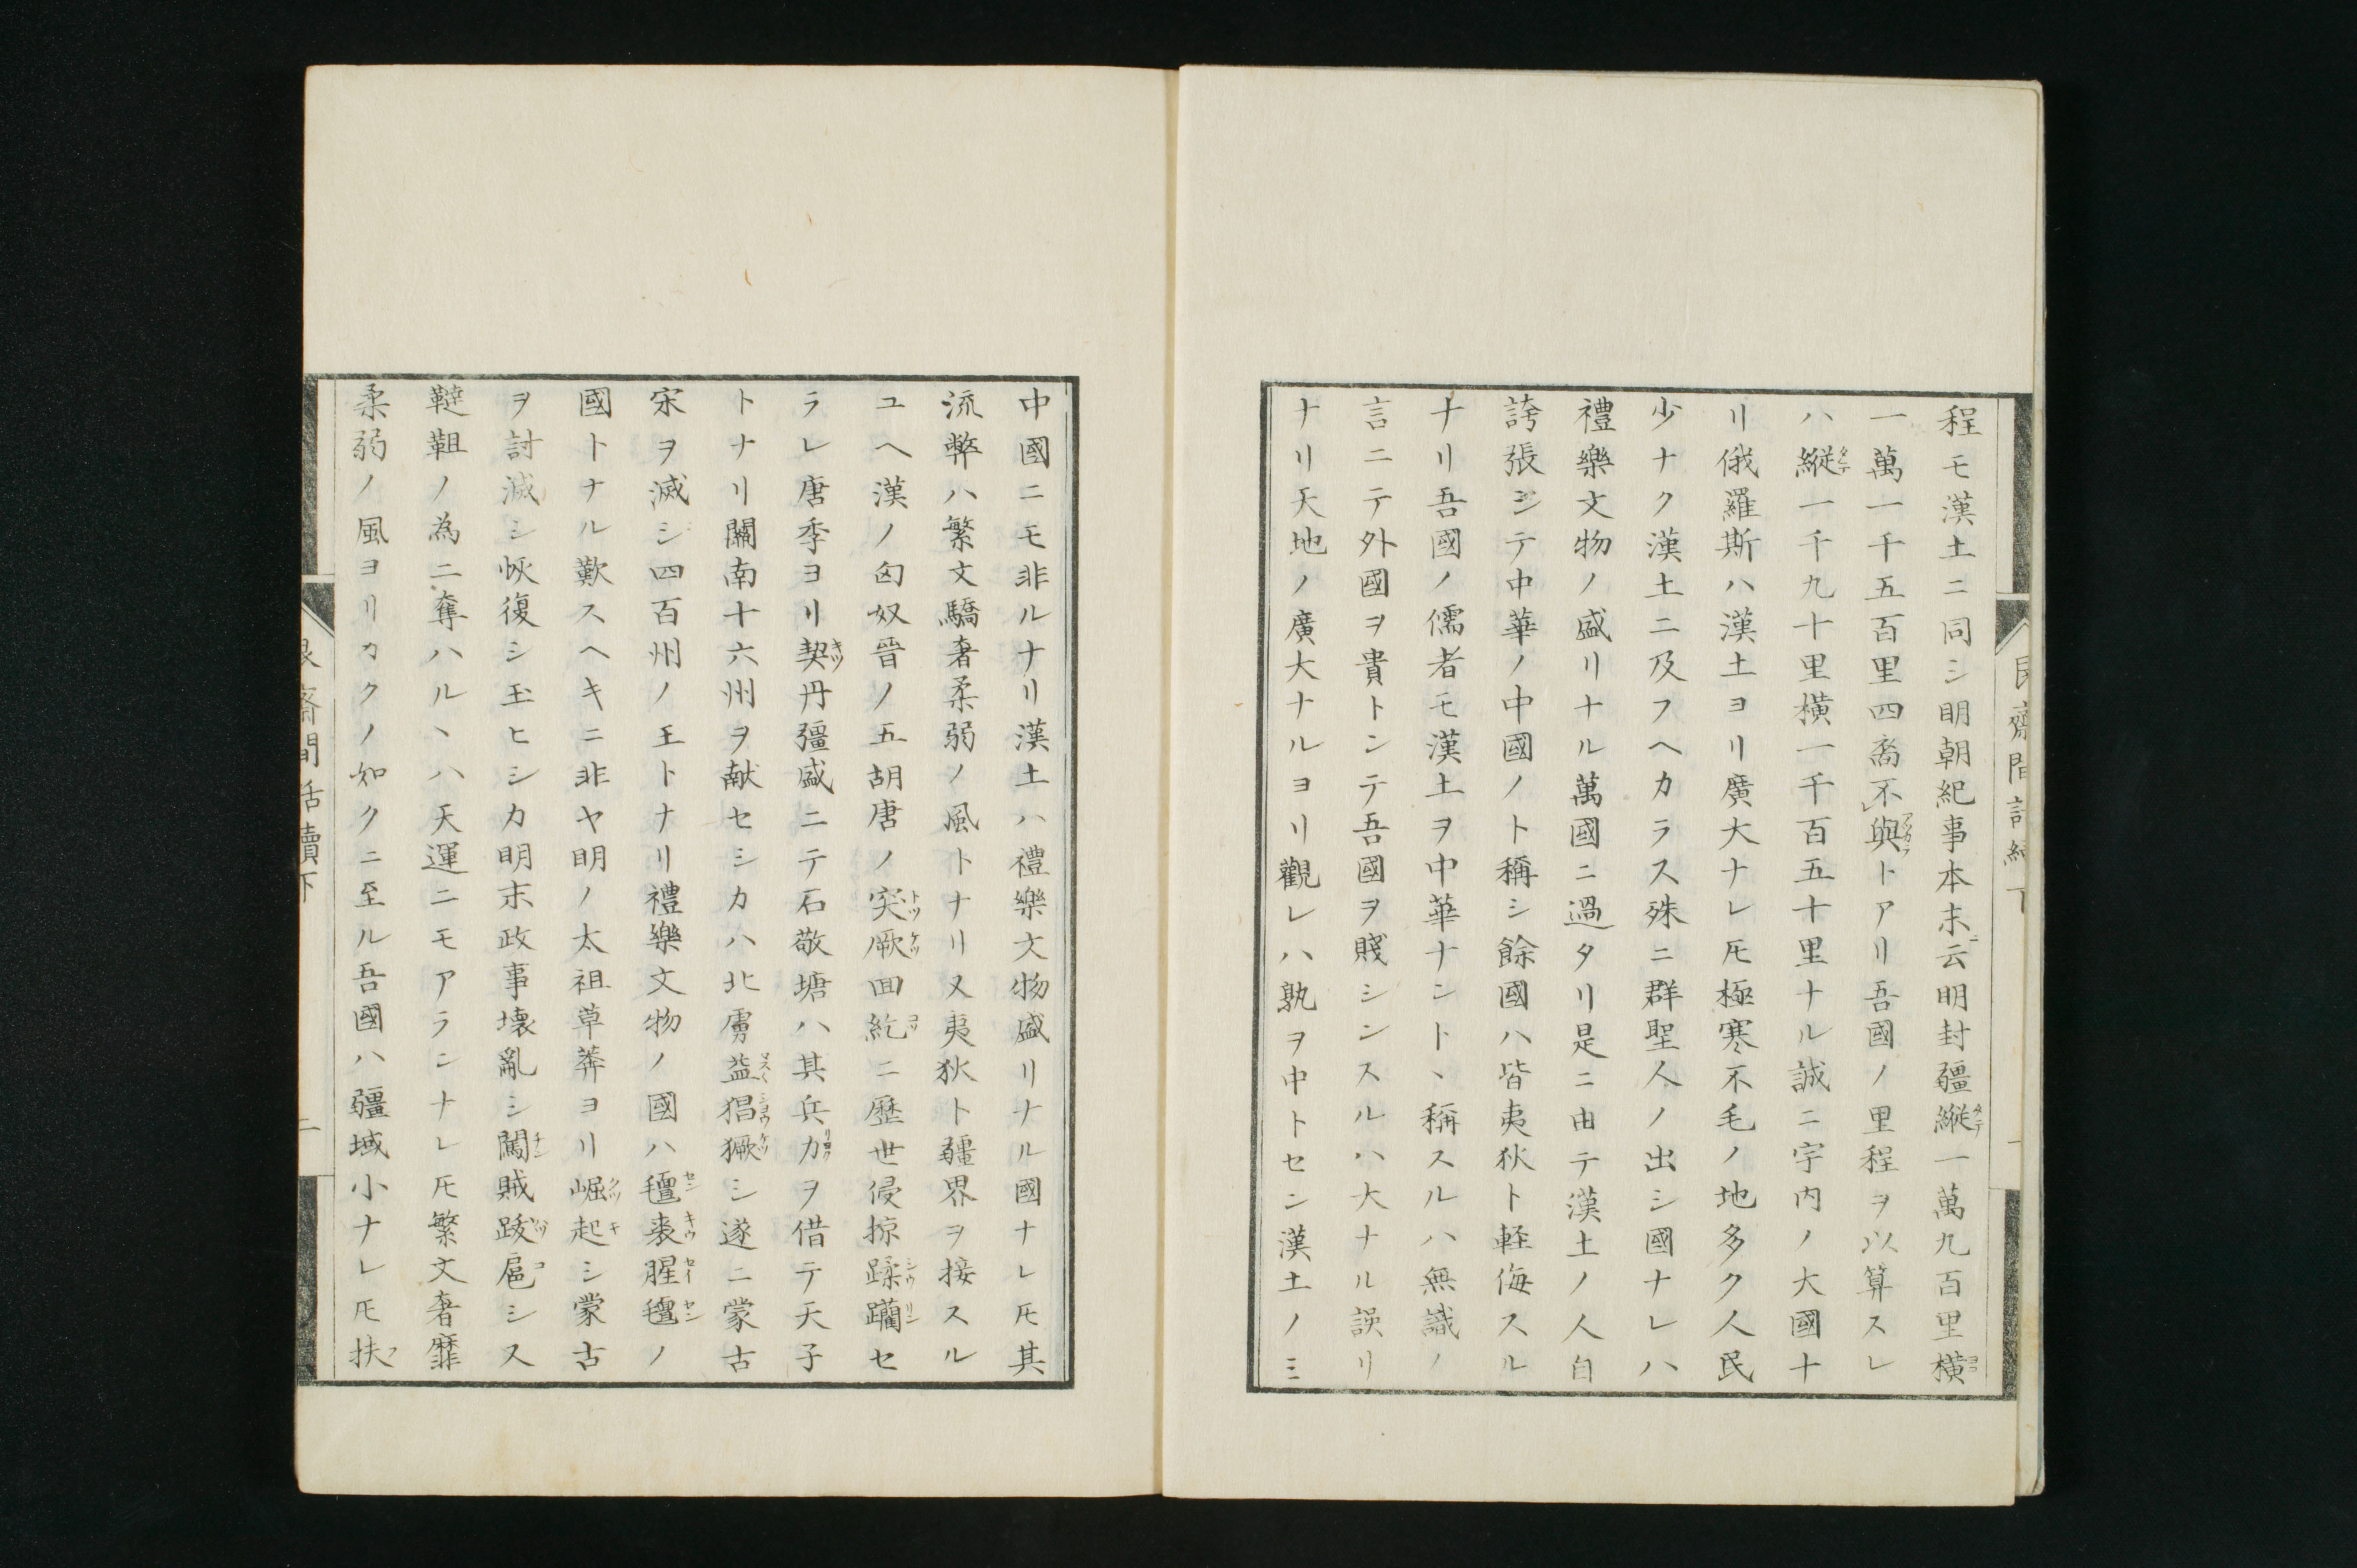 程モ漢土ニ同シ明朝紀事本末ニ云明封疆縦一萬九百里横
一萬一千五百里四裔不與トアリ吾國ノ里程ヲ以算スレ
ハ縦一千九十里横一千百五十里ナル誠ニ宇内ノ大國ナ
リ俄羅斯ハ漢土ヨリ廣大ナレ𪜈極寒不毛ノ地多ク人民
少ナク漢土ニ及フヘカラス殊ニ群聖人ノ出シ國ナレハ
禮樂文物ノ盛リナル萬國ニ過タリ是ニ由テ漢土ノ人自
誇張シテ中華ノ中國ノト稱シ餘國ハ皆夷狄ト軽侮スル
ナリ吾國ノ儒者モ漢土ヲ中華ナント、稱スルハ無識ノ
言ニテ外國ヲ貴トンテ吾國ヲ賤シンスルハ大ナル誤リ
ナリ天地ノ廣大ナルヨリ觀レハ孰ヲ中トセン漢土ノミ
中國ニモ非ルナリ漢土ハ禮樂文物盛リナル國ナレ𪜈其
流弊ハ繁文驕奢柔弱ノ風トナリ又夷狄ト疆界ヲ接スル
ユヘ漢ノ匈奴晉ノ五胡唐ノ突厥回紇ニ歴世侵掠蹂躪セ
ラレ唐季ヨリ契丹彊盛ニテ石敬塘ハ其兵力ヲ借テ天子
トナリ關南十六州ヲ献セシカハ北虜益猖獗シ遂ニ蒙古
宋ヲ滅シ四百州ノ王トナリ禮樂文物ノ國ハ氊裘腥氊ノ
國トナル歎スヘキニ非ヤ明ノ太祖草莽ヨリ崛起シ蒙古
ヲ討滅シ恢復シ玉ヒシカ明末政事壊亂シ闖賊跋扈シス
韃靼ノ為ニ奪ハル、ハ天運ニモアランナレ𪜈繁文奢靡
柔弱ノ風ヨリカクノ如クニ至ル吾國ハ疆域小ナレ𪜈扶